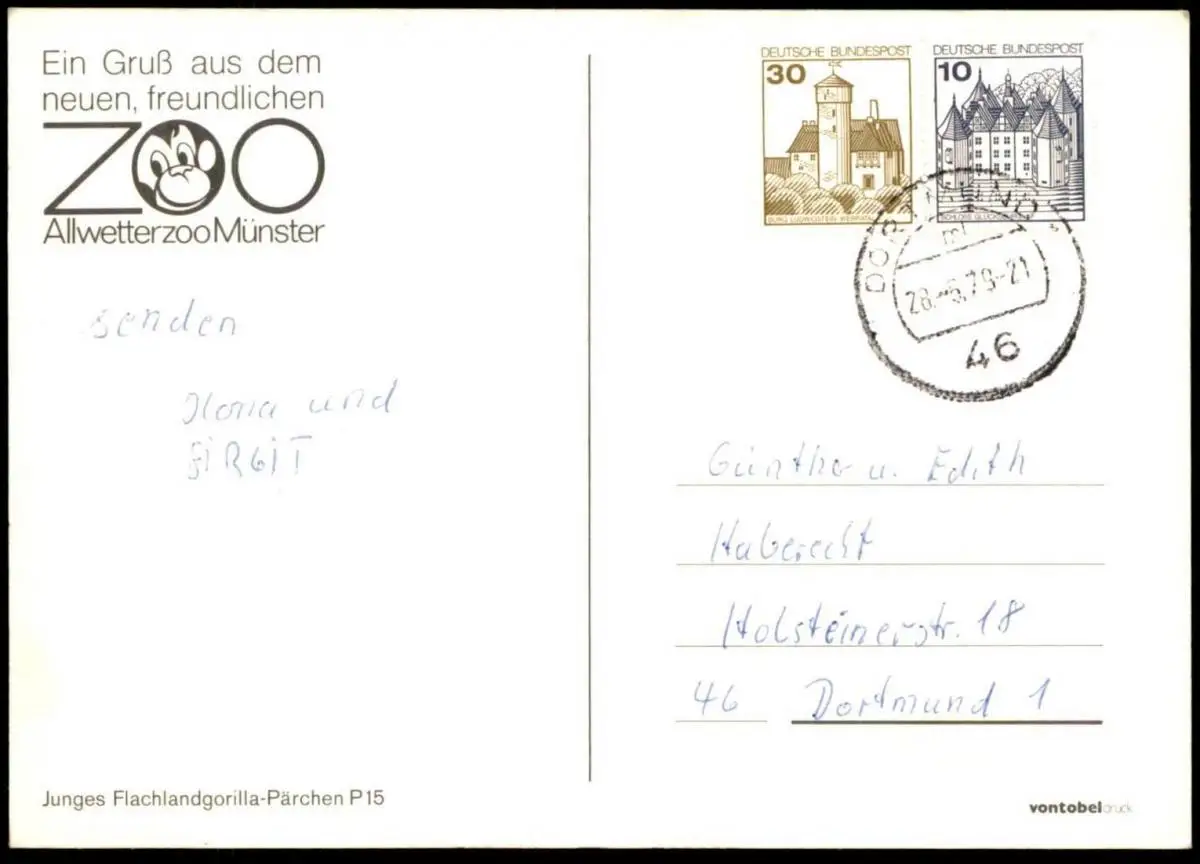 Ein Gruß aus dem
neuen, freundlichen
ZOO
Allwetterzoo Münster
senden
Ilona und
BIRGIT
Junges Flachlandgorilla-Pärchen P15
DEUTSCHE BUNDESPOST
30
BURG LUDWIGSTEIN WERRATAL
DEUTSCHE BUNDESPOST
10
SCHLOSS GLÜCKSBURG
DORTMUND
28.-6.79-21
46
Günther u. Edith
Haberecht
Holsteinerstr. 18
46 Dortmund 1
vontobeldruck